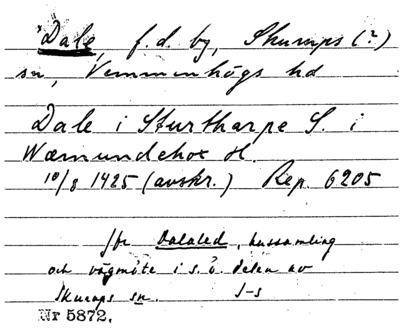 Dale, f.d. by, Skurups (?)
sn, Vemmenhögs hd
Dale i Sturtharpe S. i
Wæmundehøx H.
10/8 1425 (avskr.) Rep. 6205
Jfr Dalaled, hussamling
och vägmöte i s.ö. delen av
Skurups sn. J-s
Nr 5872.